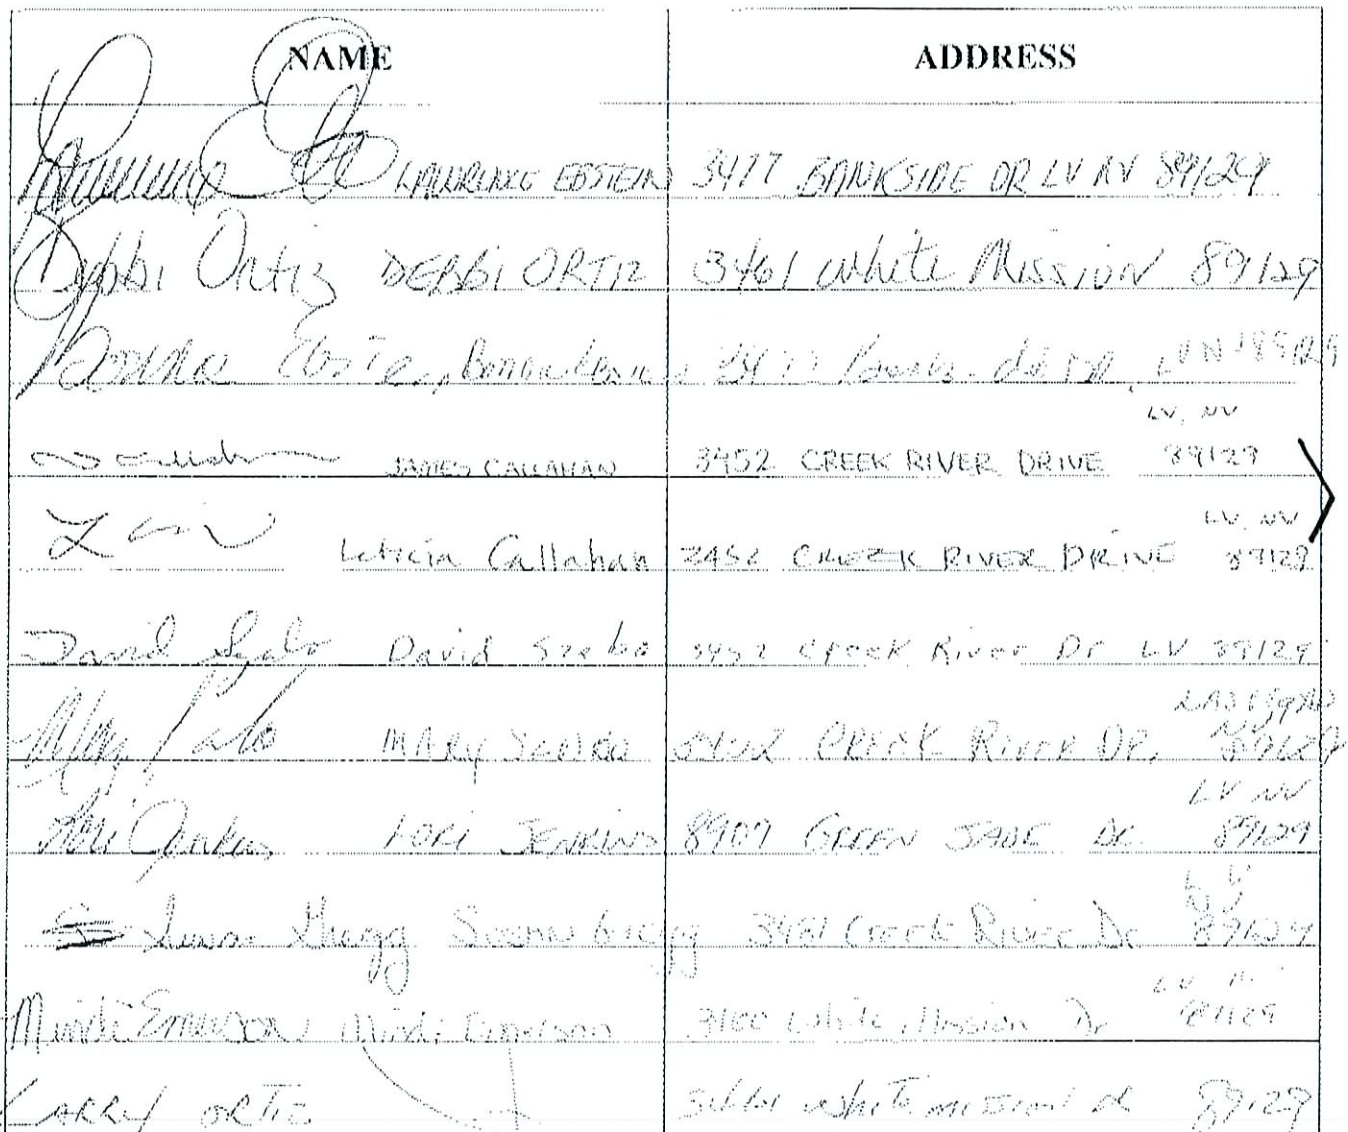 NAME ADDRESS
LAWRENCE EBSTEIN 3477 BANKSIDE DR LV NV 89129
Debbi Ortiz DEBBI ORTIZ 3461 White Mission 89129
Bonnie 3477 Dr. LV NV 89129
LV, NV
JAMES CALLAHAN 3452 CREEK RIVER DRIVE 89129
LV, NV
Leticia Callahan 3452 CREEK RIVER DRIVE 89129
David Szabo David Szabo 3452 Creek River Dr LV 89129
LAS VEGAS
NV
Mary Szabo MARY SZABO CREEK RIVER DR. 89129
LV NV
Lori Jenkins LORI JENKINS 8907 GREEN JADE Dr. 89129
LV
NV
Susan Gregg Susan Gregg 3461 Creek River Dr 89129
LV
Mindi Emerson Mindi Emerson White Mission Dr 89129
LARRY ORTIZ 3461 White Mission Dr 89129